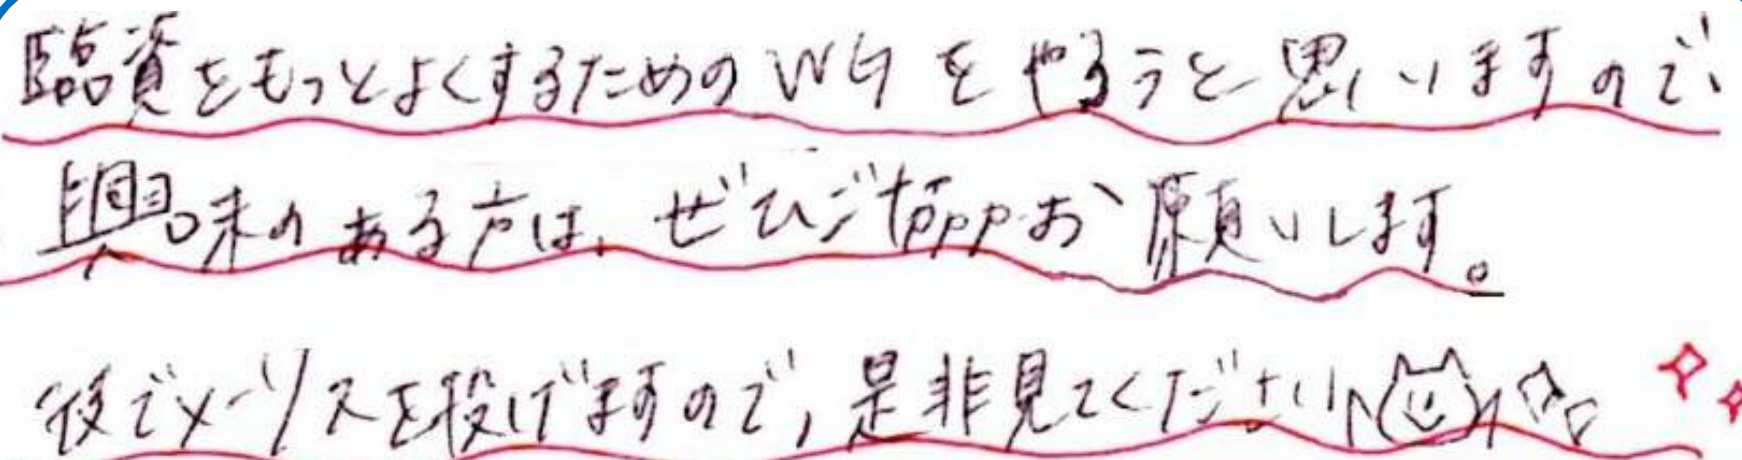 臨資をもっとよくするためのWGをやろうと思いますので、
興味のある方は、ぜひご協力お願いします。
後でメーリスを投げますので、是非見てください